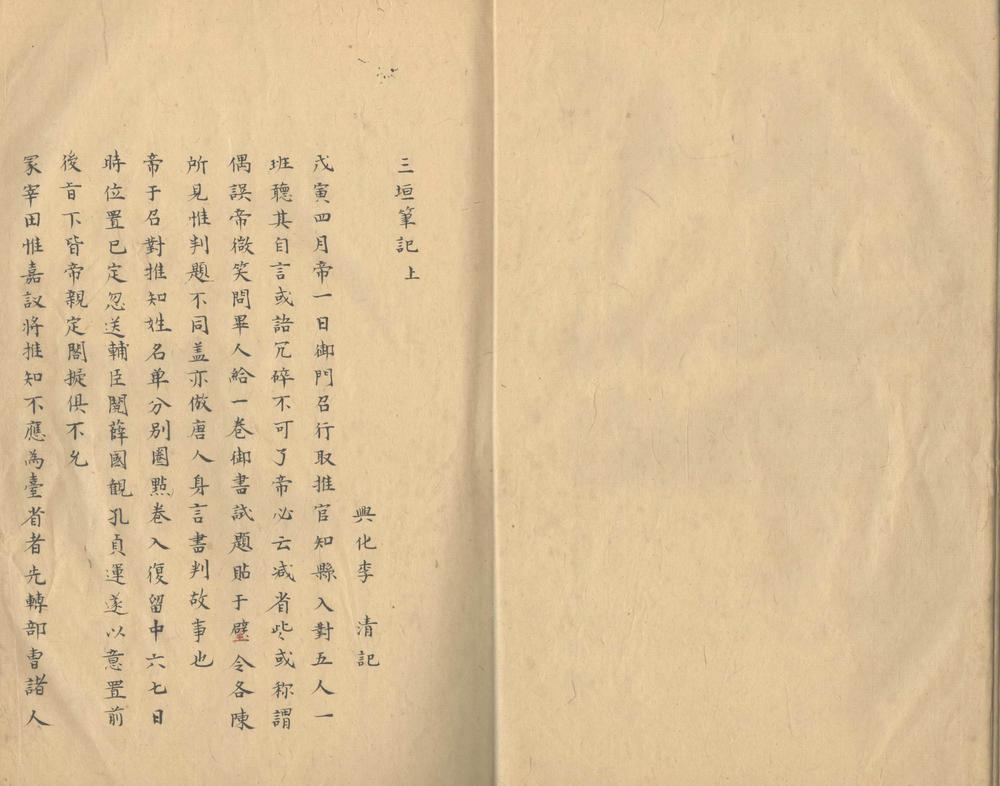 三垣筆記上
興化李 清記
戊寅四月帝一日御門召行取推官知縣入對五人一
班聽其自言或語冗碎不可了帝必云减省些或称謂
偶誤帝微笑問畢人給一卷御書試題貼于壁令各陳
所見惟判題不同盖亦倣唐人身言書判故事也
帝于召對推知姓名单分别圈點卷入復留中六七日
時位置已定忽送輔臣閲薛國觀孔貞運遂以意置前
後旨下皆帝親定閣擬俱不允
冡宰田惟嘉議将推知不應為臺省者先轉部曹諸人